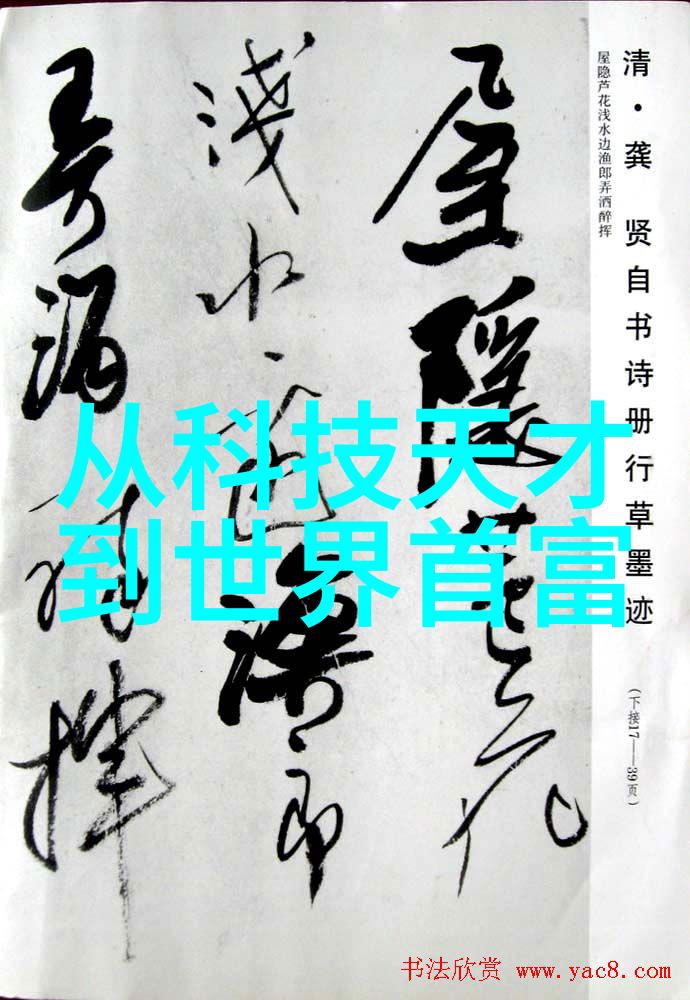 清·龚 贤自书诗册行草墨迹
(下接17——39页)
屋隐芦花浅水边渔郎弄洒醉挥
屋隱芦花
淺水邊漁郎
弄酒醉揮
从科技天才
到世界首富
书法欣赏 www.yac8.com